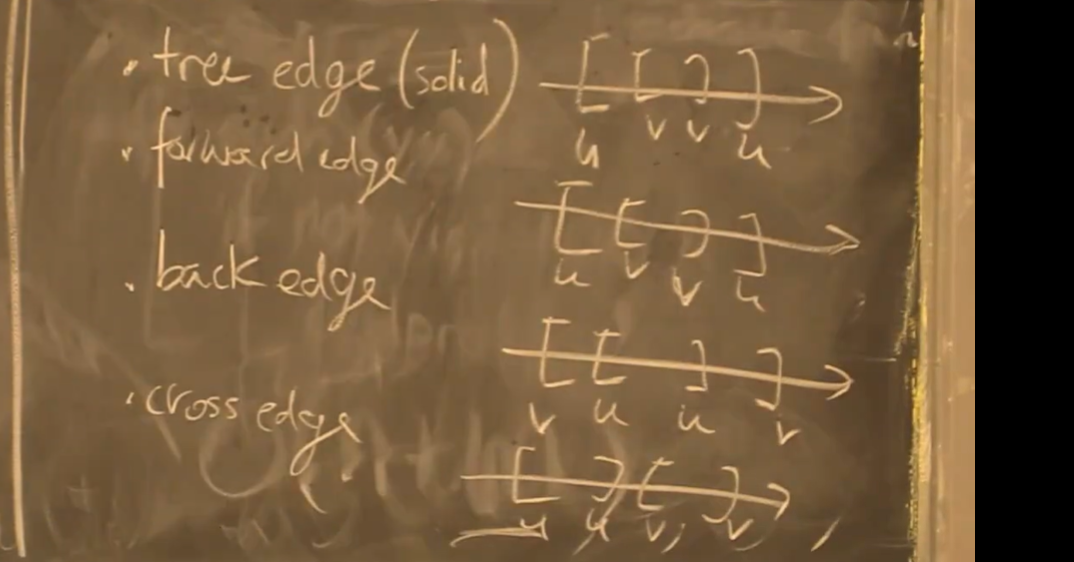 · tree edge (solid) [ [ ] ]
u v v u
· forward edge
[ [ ] ]
u v v u
· back edge
[ [ ] ]
v u u v
· cross edge
[ ] [ ]
u u v, v